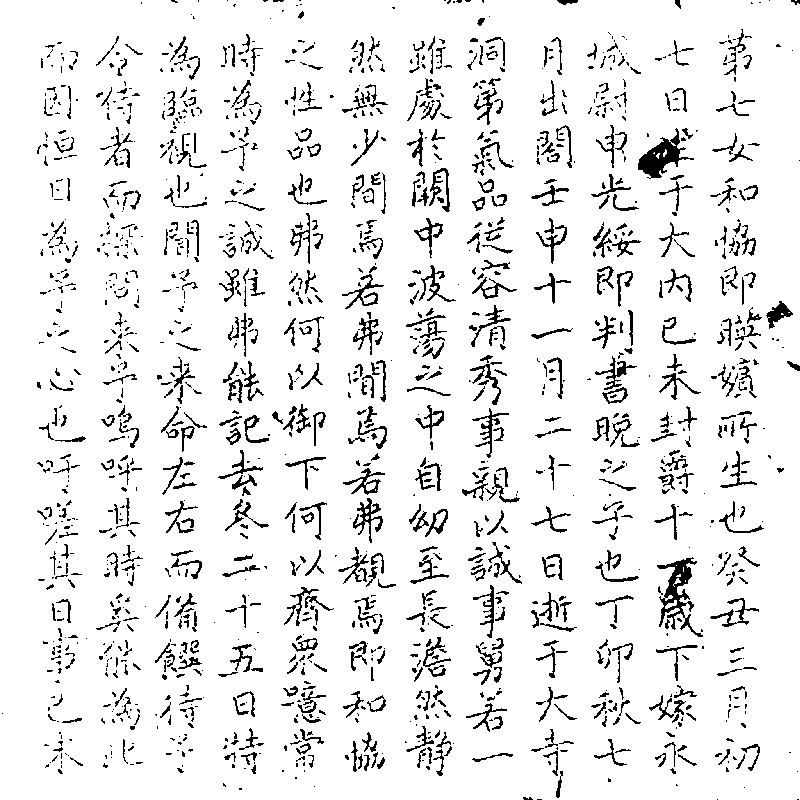 第七女和協即暎嬪所生也癸丑三月初
七日生于大內己未封爵十一歲下嫁永
城尉申光綏即判書晚之子也丁卯秋七
月出閤壬申十一月二十七日逝于大寺
洞第氣品從容清秀事親以誠事舅若一
雖處於闕中波蕩之中自幼至長澹然靜
然無少間焉若弗聞焉若弗覩焉即和協
之性品也弗然何以御下何以齊衆噫常
時為予之誠雖弗能記去冬二十五日特
為臨視也聞予之来命左右而備饌待予
令侍者而探問来予嗚呼其時奚能為此
而因恒日為予之心也吁嗟其日事已未